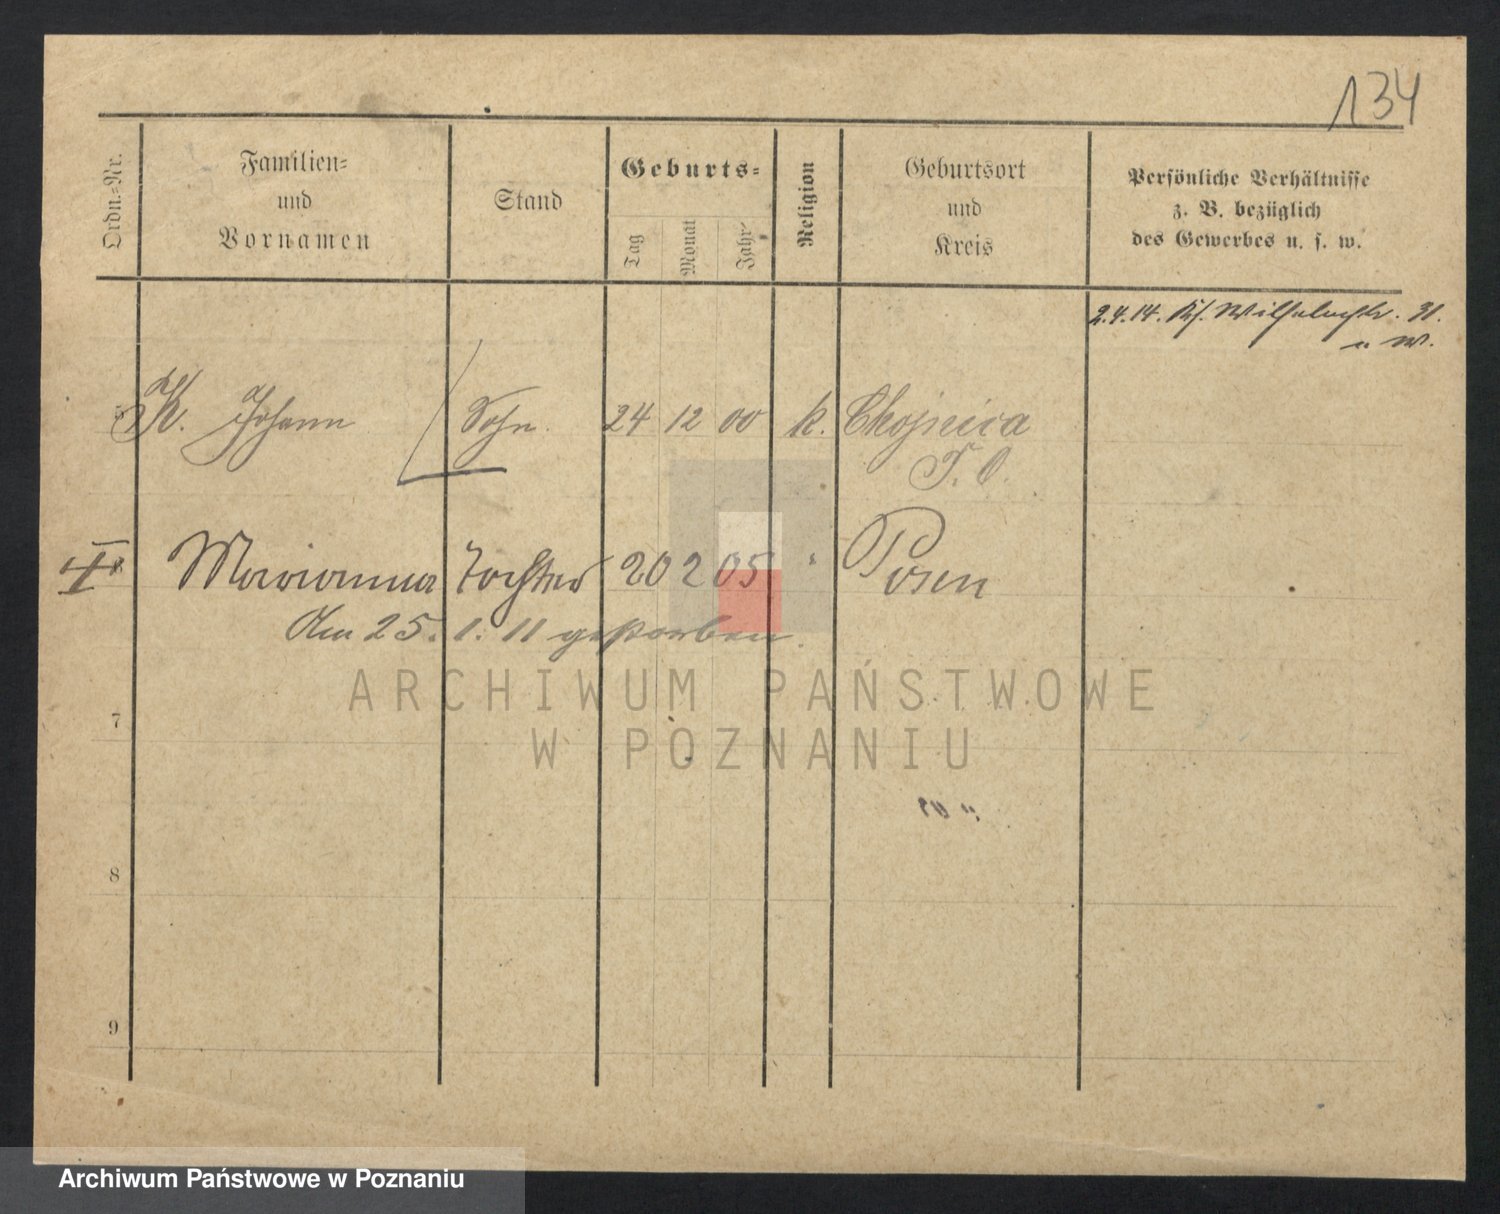 134
Ordn.-Nr.
Familien-
und
Vornamen
Stand
Geburts-
Tag
Monat
Jahr
Religion
Geburtsort
und
Kreis
Persönliche Verhältnisse
z. B. bezüglich
des Gewerbes u. s. w.
2.4.14. Wilhelmstr.
K. Johann Sohn. 24 12 00 k. Chojnica
P. O.
Marianna Tochter 20 2 05 " Posen
Am 25. 1. 11 gestorben.
ARCHIWUM PAŃSTWOWE
W POZNANIU
7
8
9
Archiwum Państwowe w Poznaniu